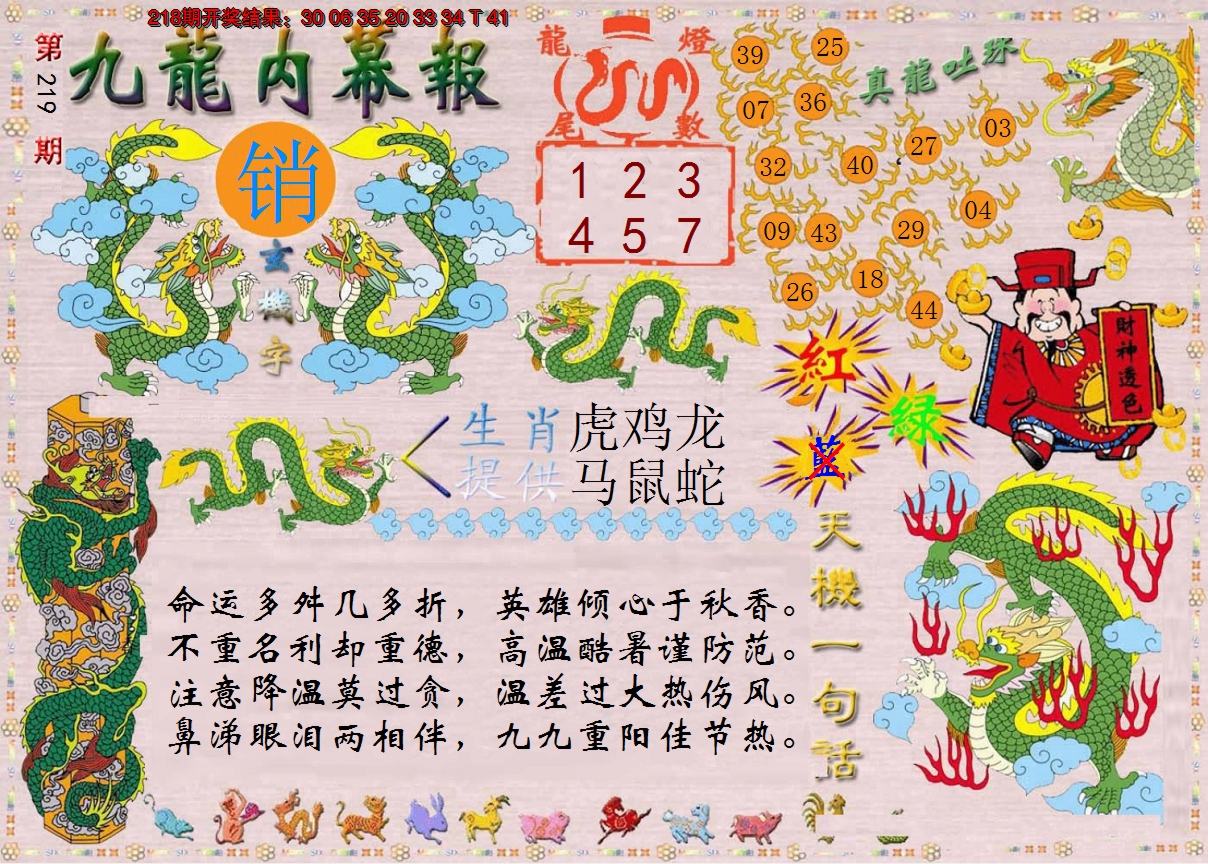 218期开奖结果：30 06 35 20 33 34 T 41
第219期
九龍内幕報
销
玄機字
龍燈尾數
1 2 3
4 5 7
真龍吐珠
39 25
07 36
27 03
32 40
04
09 43 29
26 18
44
紅
綠
藍
財神透色
生肖 虎鸡龙
提供 马鼠蛇
天機一句話
命运多舛几多折，英雄倾心于秋香。
不重名利却重德，高温酷暑谨防范。
注意降温莫过贪，温差过大热伤风。
鼻涕眼泪两相伴，九九重阳佳节热。